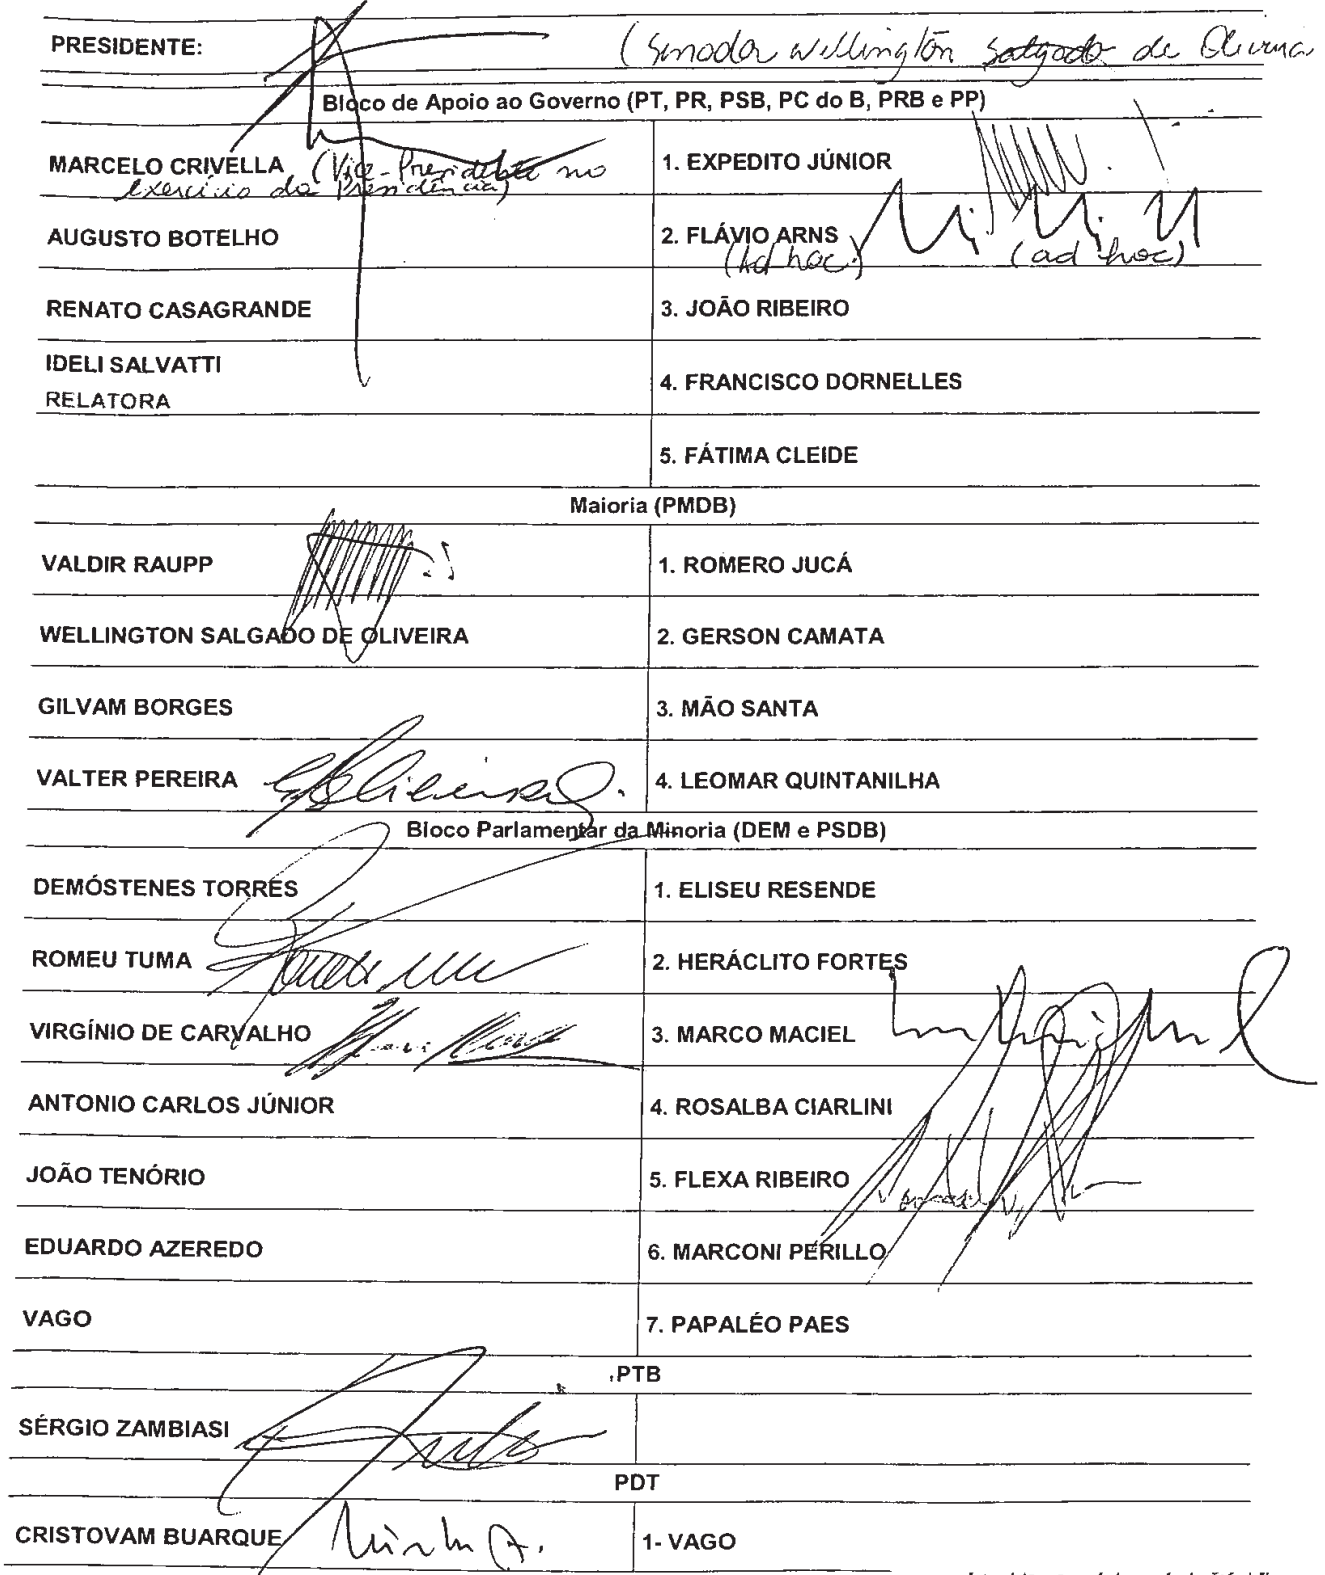 PRESIDENTE: (Senador Wellington Salgado de Oliveira
Bloco de Apoio ao Governo (PT, PR, PSB, PC do B, PRB e PP)
MARCELO CRIVELLA (Vice-Presidente no
exercício da Presidência)
1. EXPEDITO JÚNIOR
AUGUSTO BOTELHO
2. FLÁVIO ARNS
(Ad hoc.) (ad hoc)
RENATO CASAGRANDE
3. JOÃO RIBEIRO
IDELI SALVATTI
RELATORA
4. FRANCISCO DORNELLES
5. FÁTIMA CLEIDE
Maioria (PMDB)
VALDIR RAUPP
1. ROMERO JUCÁ
WELLINGTON SALGADO DE OLIVEIRA
2. GERSON CAMATA
GILVAM BORGES
3. MÃO SANTA
VALTER PEREIRA
4. LEOMAR QUINTANILHA
Bloco Parlamentar da Minoria (DEM e PSDB)
DEMÓSTENES TORRES
1. ELISEU RESENDE
ROMEU TUMA
2. HERÁCLITO FORTES
VIRGÍNIO DE CARVALHO
3. MARCO MACIEL
ANTONIO CARLOS JÚNIOR
4. ROSALBA CIARLINI
JOÃO TENÓRIO
5. FLEXA RIBEIRO
EDUARDO AZEREDO
6. MARCONI PERILLO
VAGO
7. PAPALÉO PAES
PTB
SÉRGIO ZAMBIASI
PDT
CRISTOVAM BUARQUE
1- VAGO